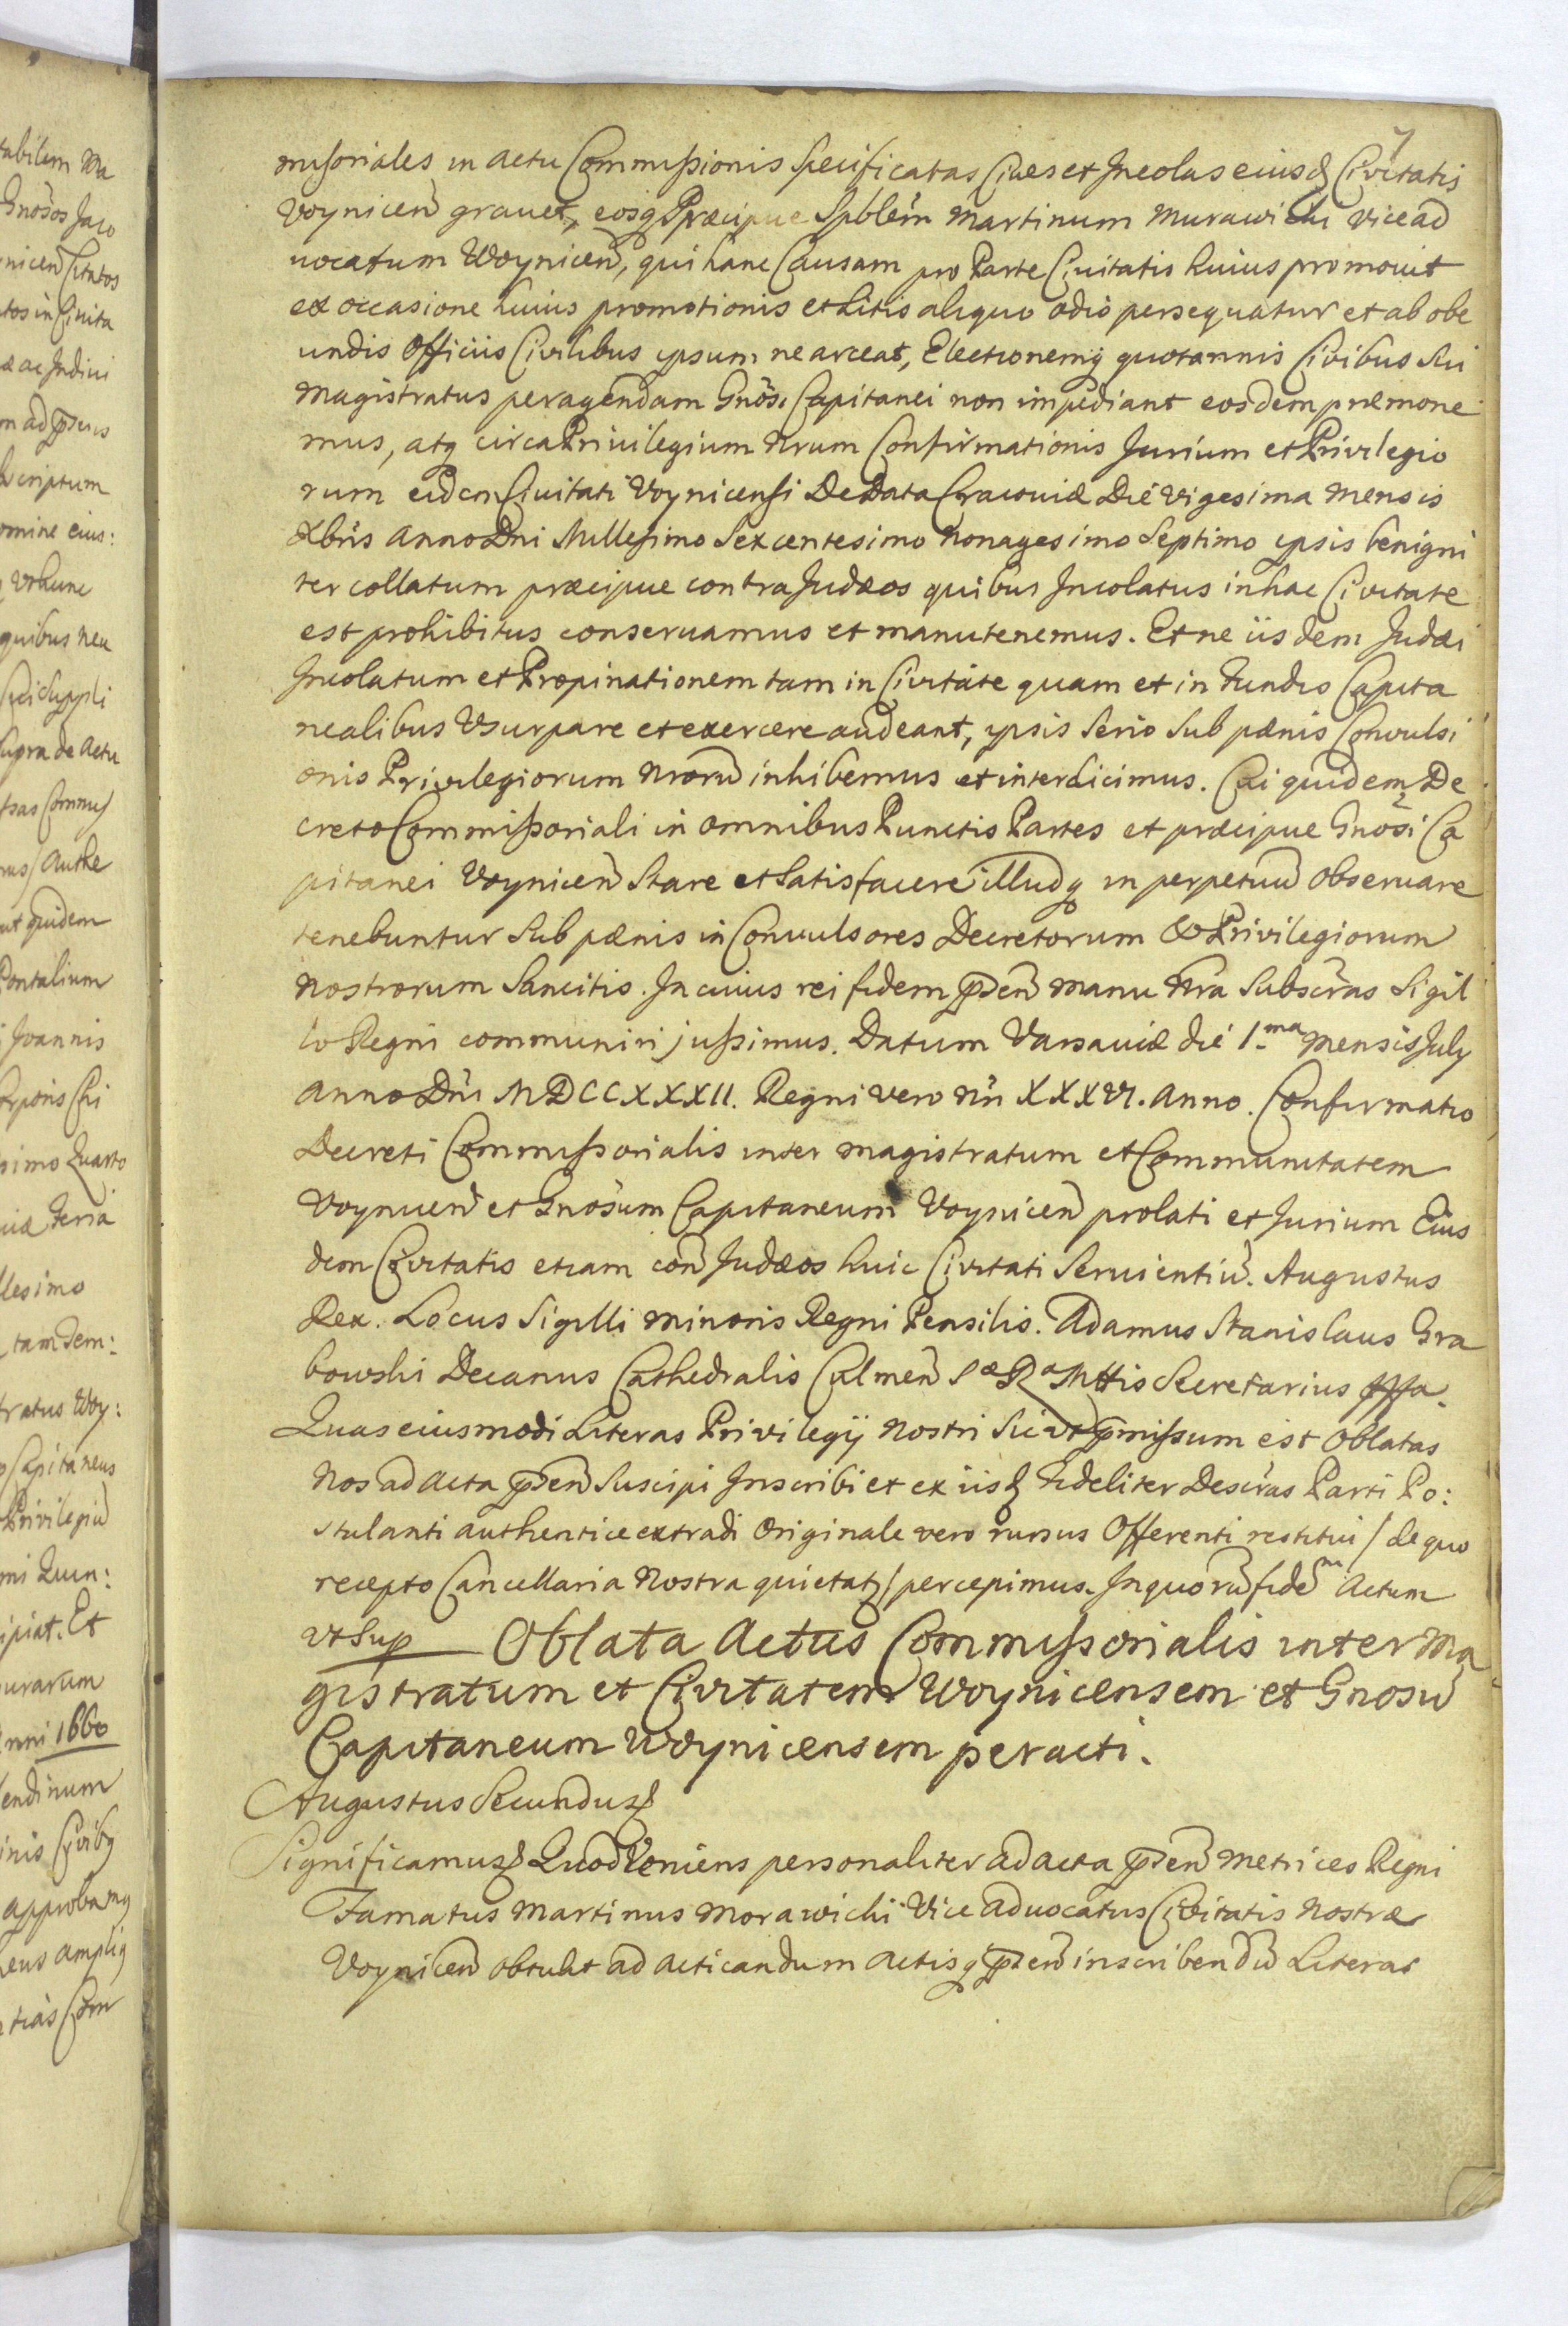 7
missoriales in actu Commissionis Specificatas Cives et Incolas eiusd Civitatis
Voynicen gravet, eosq Præcipue Spblem Martinum Murawicki Vicead
uocatum Woynicen, qui hanc Causam pro Parte Civitatis huius promouit
ex occasione huius promotionis et Litis aliquo odio persequatur et ab obe
undis Officiis Civilibus ypsum ne arceat, Electionemq quotannis Civibus Sui
Magistratus peragendam Gnosi Capitanei non impediant eosdem præmone
mus, atq circa Privilegium Nrum Confirmationis Jurium et Privilegio
rum eidem Civitati Voynicensi De Data Cracoviæ Die Vigesima Mensis
Xbris Anno Dni Millesimo Sexcentesimo Nonagesimo Septimo ypsis benigni
ter collatum præcipue contra Judæos quibus Incolatus in hac Civitate
est prohibitus conservamus et manutenemus. Et ne iisdem Judæi
Incolatum et Propinationem tam in Civitate quam et in Fundis Capita
nealibus Usurpare et exercere audeant, ypsis Serio Sub pænis Convulsi
onis Privilegiorum Nroru inhibemus et interdicimus. Cui quidem De
creto Commissoriali in omnibus Punctis Partes et præcipue Gnosi Ca
pitanei Voynicen Stare et Satisfacere illudq in perpetuu Observare
tenebuntur Sub pænis in Convulsores Decretorum & Privilegiorum
Nostrorum Sancitis. In cuius rei fidem pnsen Manu Nra Subscras Sigil
lo Regni communiri jussimus. Datum Varsaviæ die 1.ma Mensis July
Anno Dni MDCCXXXII. Regni vero Nri XXXVI. Anno. Confirmatio
Decreti Commissorialis inter Magistratum et Communitatem
Voynicen et Gnosum Capitaneum Voynicen prolati et Jurium Eius
dem Civitatis etiam con Judæos huic Civitati Servientiu. Augustus
Rex. Locus Sigilli Minoris Regni Pensilis. Adamus Stanislaus Gra
bowski Decanus Cathedralis Culmen Sæ Ræ Mttis Secretarius
Quas eiusmodi Literas Privilegij Nostri Sicut pmissum est Oblatas
Nos ad Acta pnsen Suscipi Inscribi et ex iisd Fideliter Descras Parti Po:
stulanti authentice extradi Originale vero rursus Offerenti restitui / de quo
recepto Cancellaria Nostra quietatq / percepimus. In quoru fidem Actum
vt Sup Oblata Actus Commissorialis inter Ma
gistratum et Civitatem Woynicensem et Gnosu
Capitaneum Woynicensem peracti.
Augustus Secundus
Significamus Quod Veniens personaliter ad Acta pnsen Metrices Regni
Famatus Martinus Morawicki Vice Aduocatus Civitatis Nostræ
Voynicen obtulit ad acticandum Actisq pnsen inscribendu Literas